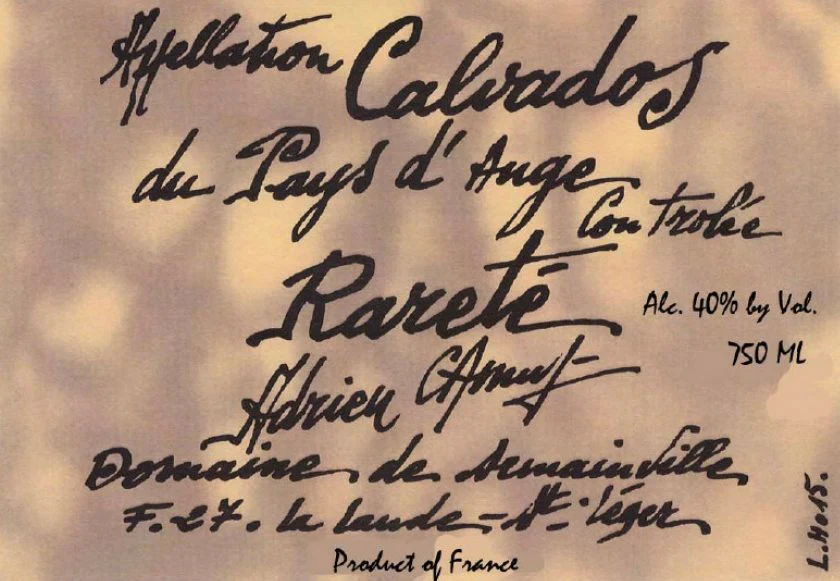 Appellation Calvados
du Pays d'Auge
Controlée
Rareté
Alc. 40% by Vol.
750 ML
Adrien Camut
Domaine de Semainville
F.27. La Lande-St-Léger
Product of France